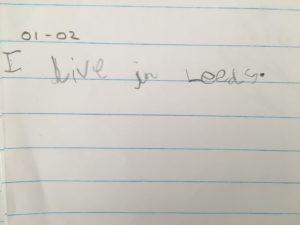 01-02
I live in Leeds.